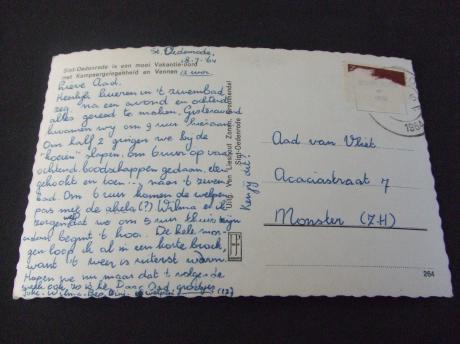 St. Oedenrode,
8-7-'64
12 uur
Sint-Oedenrode is een mooi Vakantie-oord
met Kampeergelegenheid en Vennen
Lieve Aad.
Heerlijk luieren in 't zwembad
zeg na een avond en ochtend
alles gereed te maken. Gisteravond
kwamen wij om 9 uur
Om half 2 gingen we bij de
"boeren" slapen, om 6 uur op van-
ochtend, boodschappen gedaan, eten
gekookt en toen naar 't zwem-
bad. Om 1 uur komen de welpen
pas met de akela (?) Wilma en ik
zorgen dat we om 5 uur thuis zijn
begint 't hoor. De hele mor-
gen loop ik al in een korte broek,
want 't weer is uiterst warm.
Hopen we nu maar dat 't volgende
week ook zo is hè. Dag Aad, groetjes
Wilma, Bea,
Uitg. Van Lieshout Zonen, Sint-Oedenrode
Kengy dit:
Aad van Vliet
Acaciastraat 7
Monster (ZH)
264